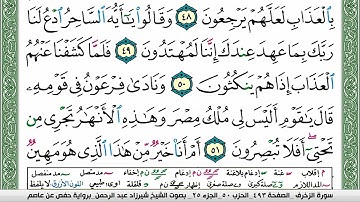 بِٱلۡعَذَابِ لَعَلَّهُمۡ يَرۡجِعُونَ ٤٨ وَقَالُواْ يَٰٓأَيُّهَ ٱلسَّاحِرُ ٱدۡعُ لَنَا
رَبَّكَ بِمَا عَهِدَ عِندَكَ إِنَّنَا لَمُهۡتَدُونَ ٤٩ فَلَمَّا كَشَفۡنَا عَنۡهُمُ
ٱلۡعَذَابَ إِذَا هُمۡ يَنكُثُونَ ٥٠ وَنَادَىٰ فِرۡعَوۡنُ فِي قَوۡمِهِۦ
قَالَ يَٰقَوۡمِ أَلَيۡسَ لِي مُلۡكُ مِصۡرَ وَهَٰذِهِ ٱلۡأَنۡهَٰرُ تَجۡرِي مِن
تَحۡتِيٓۚ أَفَلَا تُبۡصِرُونَ ٥١ أَمۡ أَنَا۠ خَيۡرٞ مِّنۡ هَٰذَا ٱلَّذِي هُوَ مَهِينٞ
سورة الزخرف - الصفحة ٤٩٣ - الحزب ٥٠ - الجزء ٢٥ - بصوت الشيخ شيرزاد عبد الرحمن - برواية حفص عن عاصم